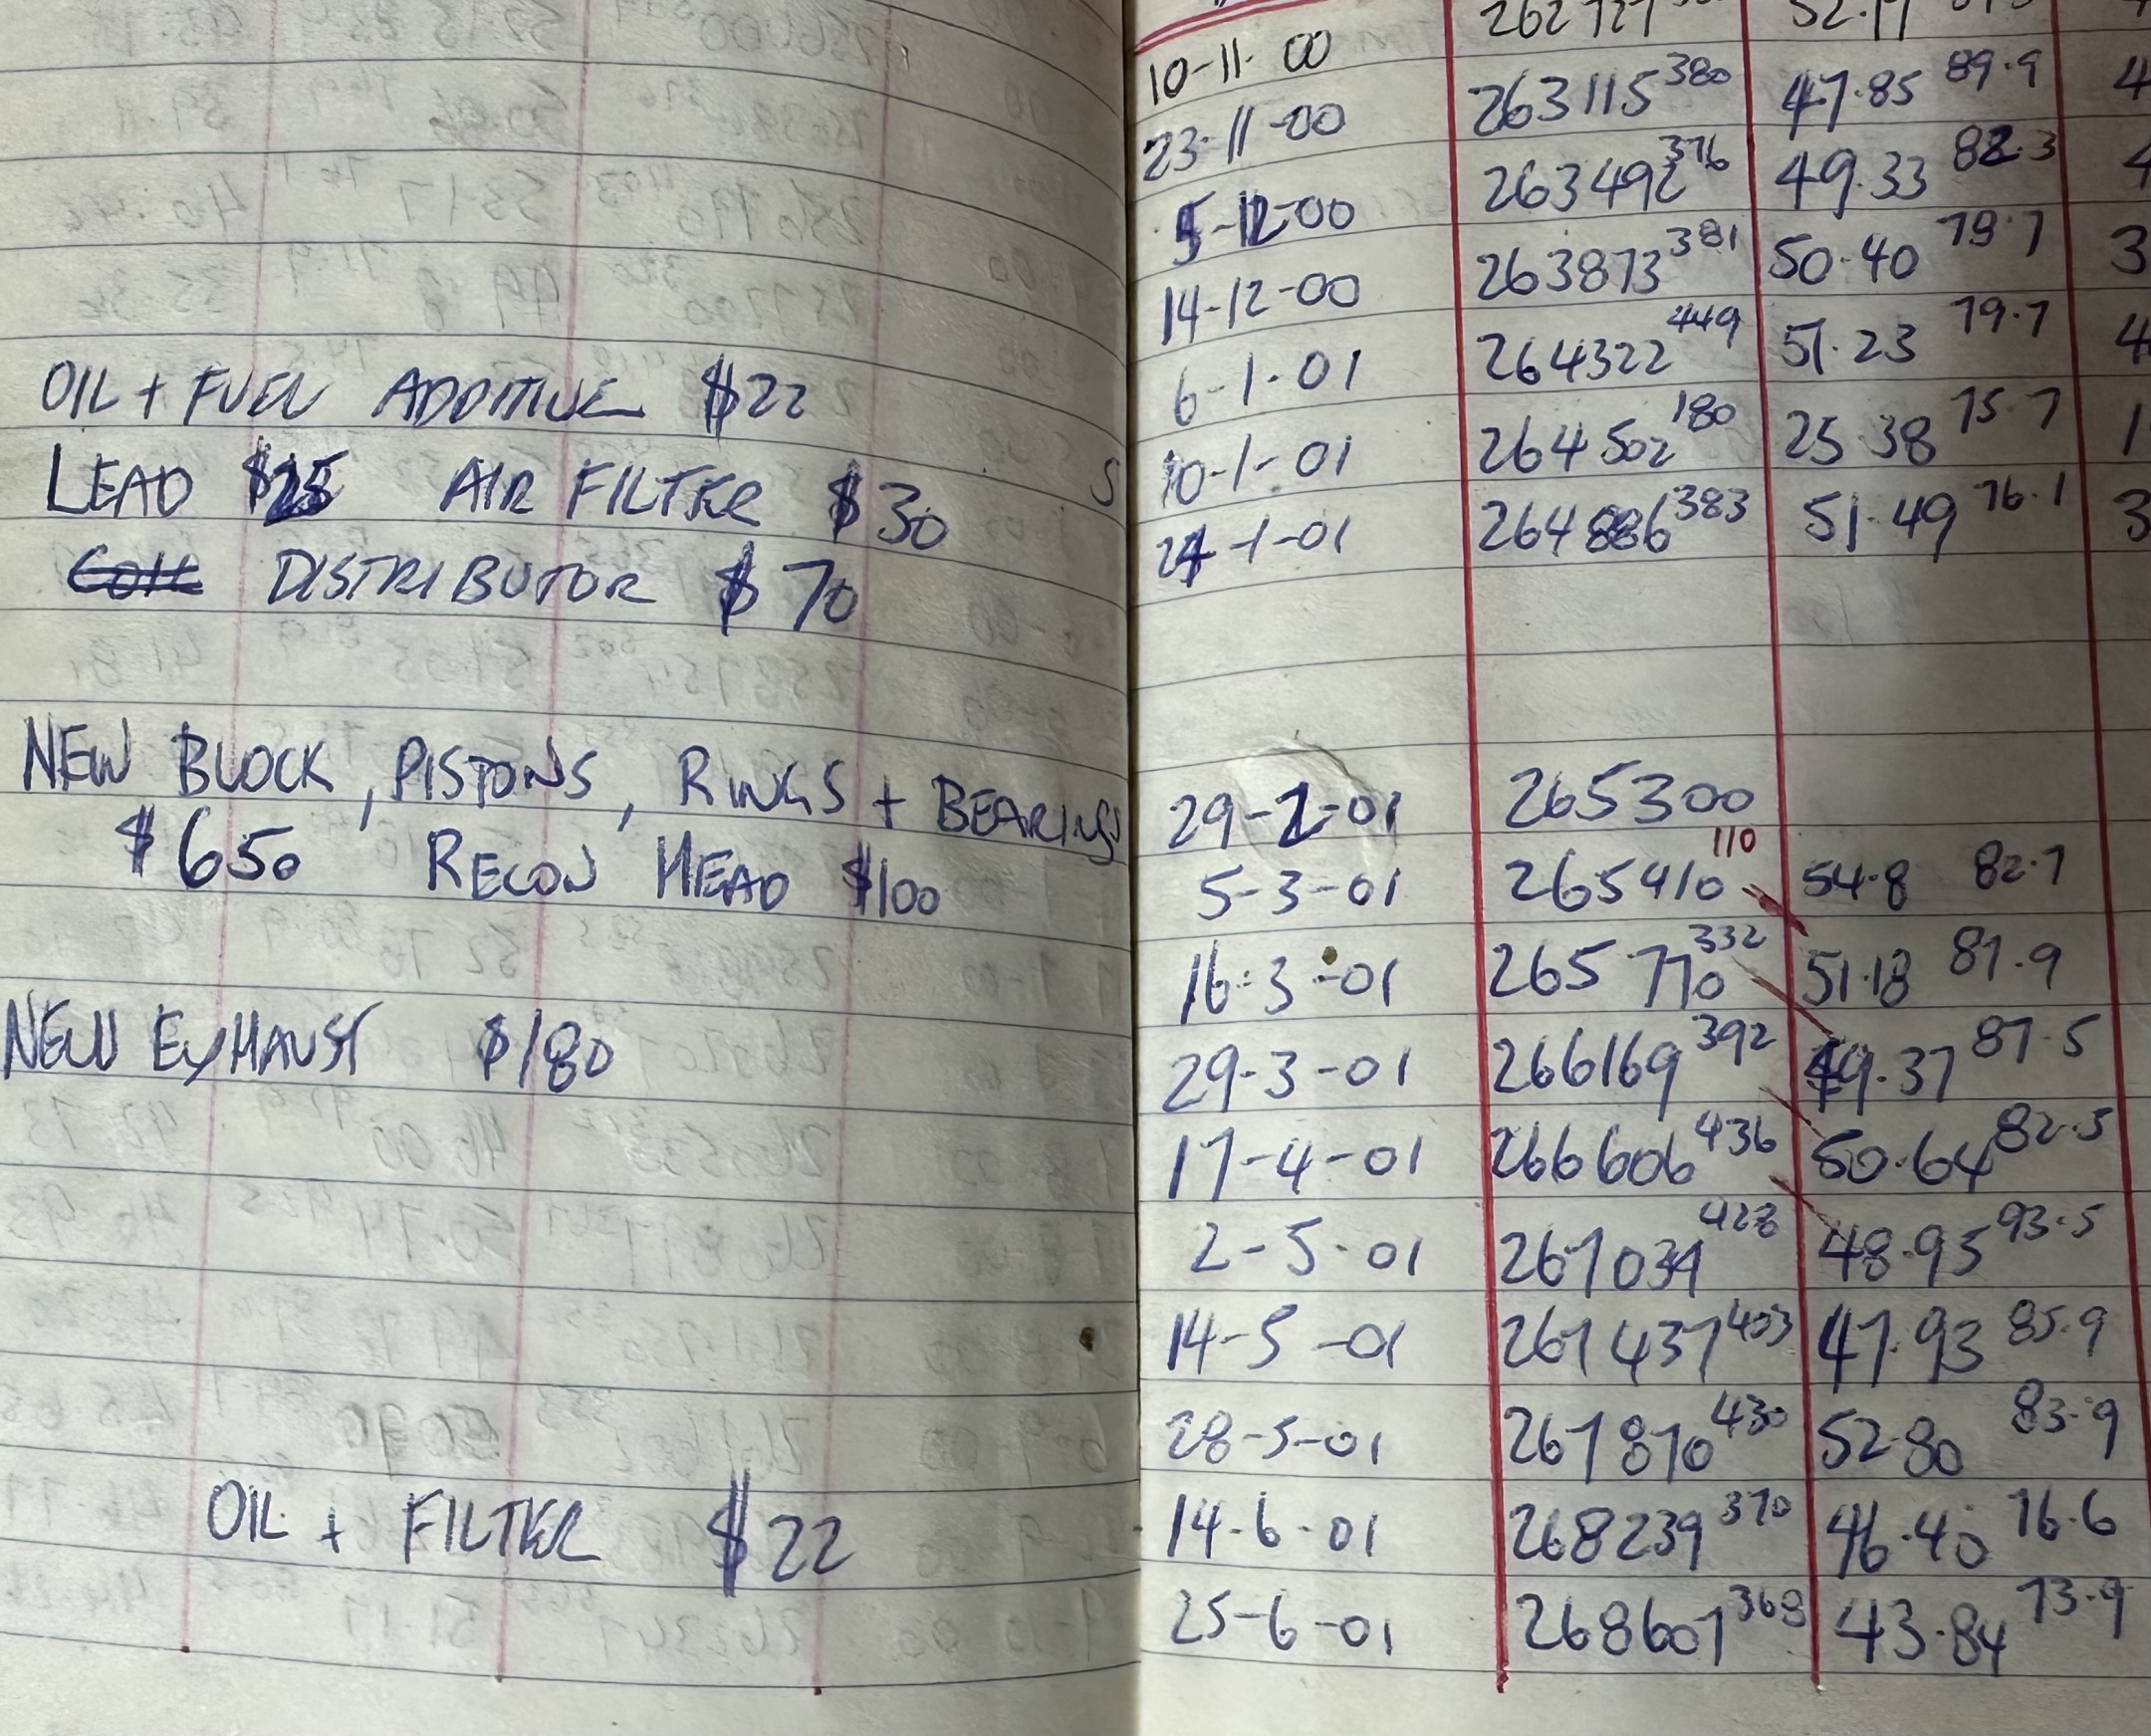 OIL + FUEL ADDITIVE $22
LEAD $25 AIR FILTER $30
COIL DISTRIBUTOR $70
NEW BLOCK, PISTONS, RINGS + BEARINGS
$650 RECON HEAD $100
NEW EXHAUST $180
OIL + FILTER $22
10-11-00 262727 52.17
23-11-00 263115 380 47.85 89.9 4
5-12-00 263492 376 49.33 82.3 4
14-12-00 263873 381 50.40 79.7 3
6-1-01 264322 449 51.23 79.7 4
10-1-01 264502 180 25.38 75.7 1
24-1-01 264886 383 51.49 76.1 3
29-2-01 265300
5-3-01 265410 110 54.8 82.7
16-3-01 265770 332 51.18 81.9
29-3-01 266169 392 49.37 87.5
17-4-01 266606 436 50.64 82.5
2-5-01 267034 428 48.95 93.5
14-5-01 267437 403 47.93 85.9
28-5-01 267870 430 52.80 83.9
14-6-01 268239 370 46.40 76.6
25-6-01 268607 368 43.84 73.9